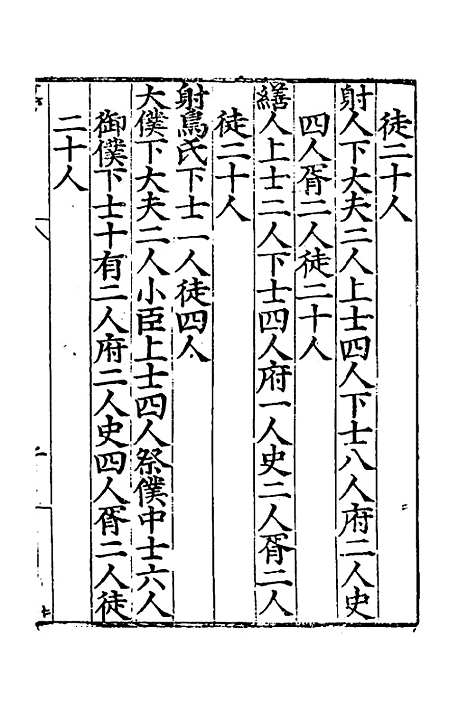 徒二十人
射人下大夫二人上士四人下士八人府二人史
四人胥二人徒二十人
繕人上士二人下士四人府一人史二人胥二人
徒二十人
射鳥氏下士一人徒四人
大僕下大夫二人小臣上士四人祭僕中士六人
御僕下士十有二人府二人史四人胥二人徒
二十人